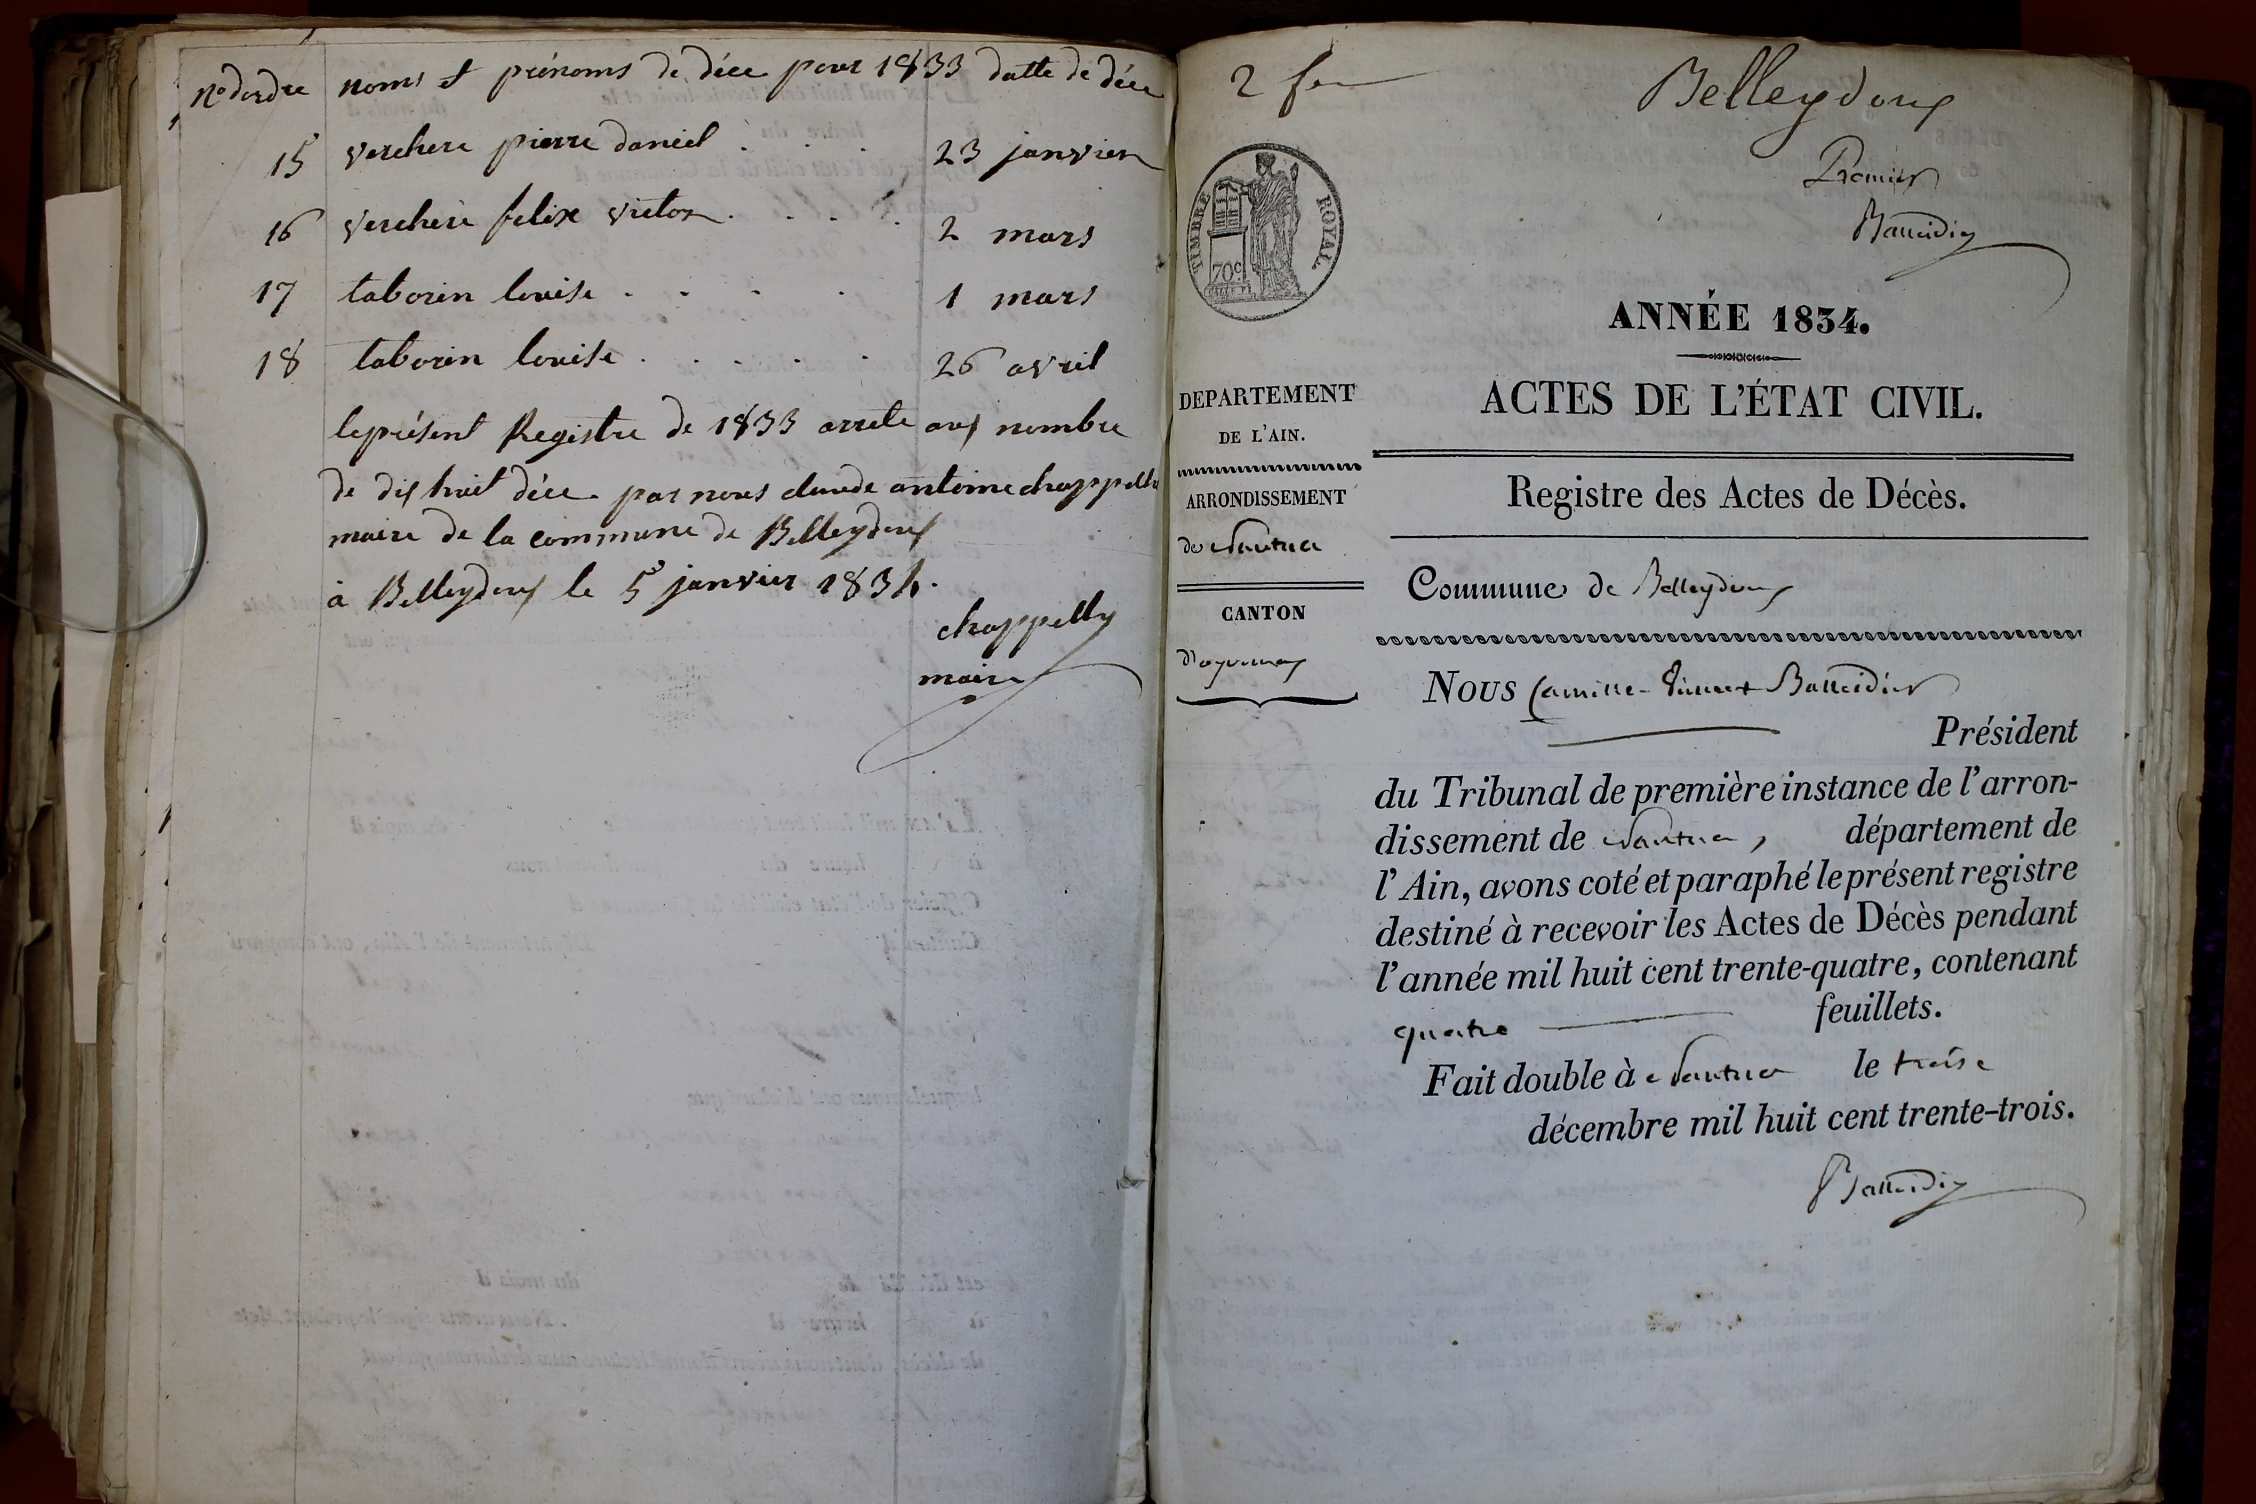 no dordre noms et prénoms de déce pour 1833 datte de déce
15 verchere pierre daniel . . . 23 janvier
16 verchere felix victor . . . . 2 mars
17 taborin louise . . . . 1 mars
18 taborin louise . . . . . 26 avril
leprésent Registre de 1833 arrete aux nombre
de dix huit déce par nous claude antoine chappelly
maire de la commune de Belleydoux
à Belleydoux le 5 janvier 1834.
chappelly
maire
2 f
Belleydoux
Premier
TIMBRE ROYAL
70c
ANNÉE 1834.
ACTES DE L'ÉTAT CIVIL.
Registre des Actes de Décès.
DEPARTEMENT
DE L'AIN.
ARRONDISSEMENT
de Nantua
CANTON
d'oyonnax
Commune de Belleydoux
Nous Camille-Vincent
Président
du Tribunal de première instance de l'arron-
dissement de Nantua, département de
l'Ain, avons coté et paraphé le présent registre
destiné à recevoir les Actes de Décès pendant
l'année mil huit cent trente-quatre, contenant
quatre feuillets.
Fait double à Nantua le treise
décembre mil huit cent trente-trois.